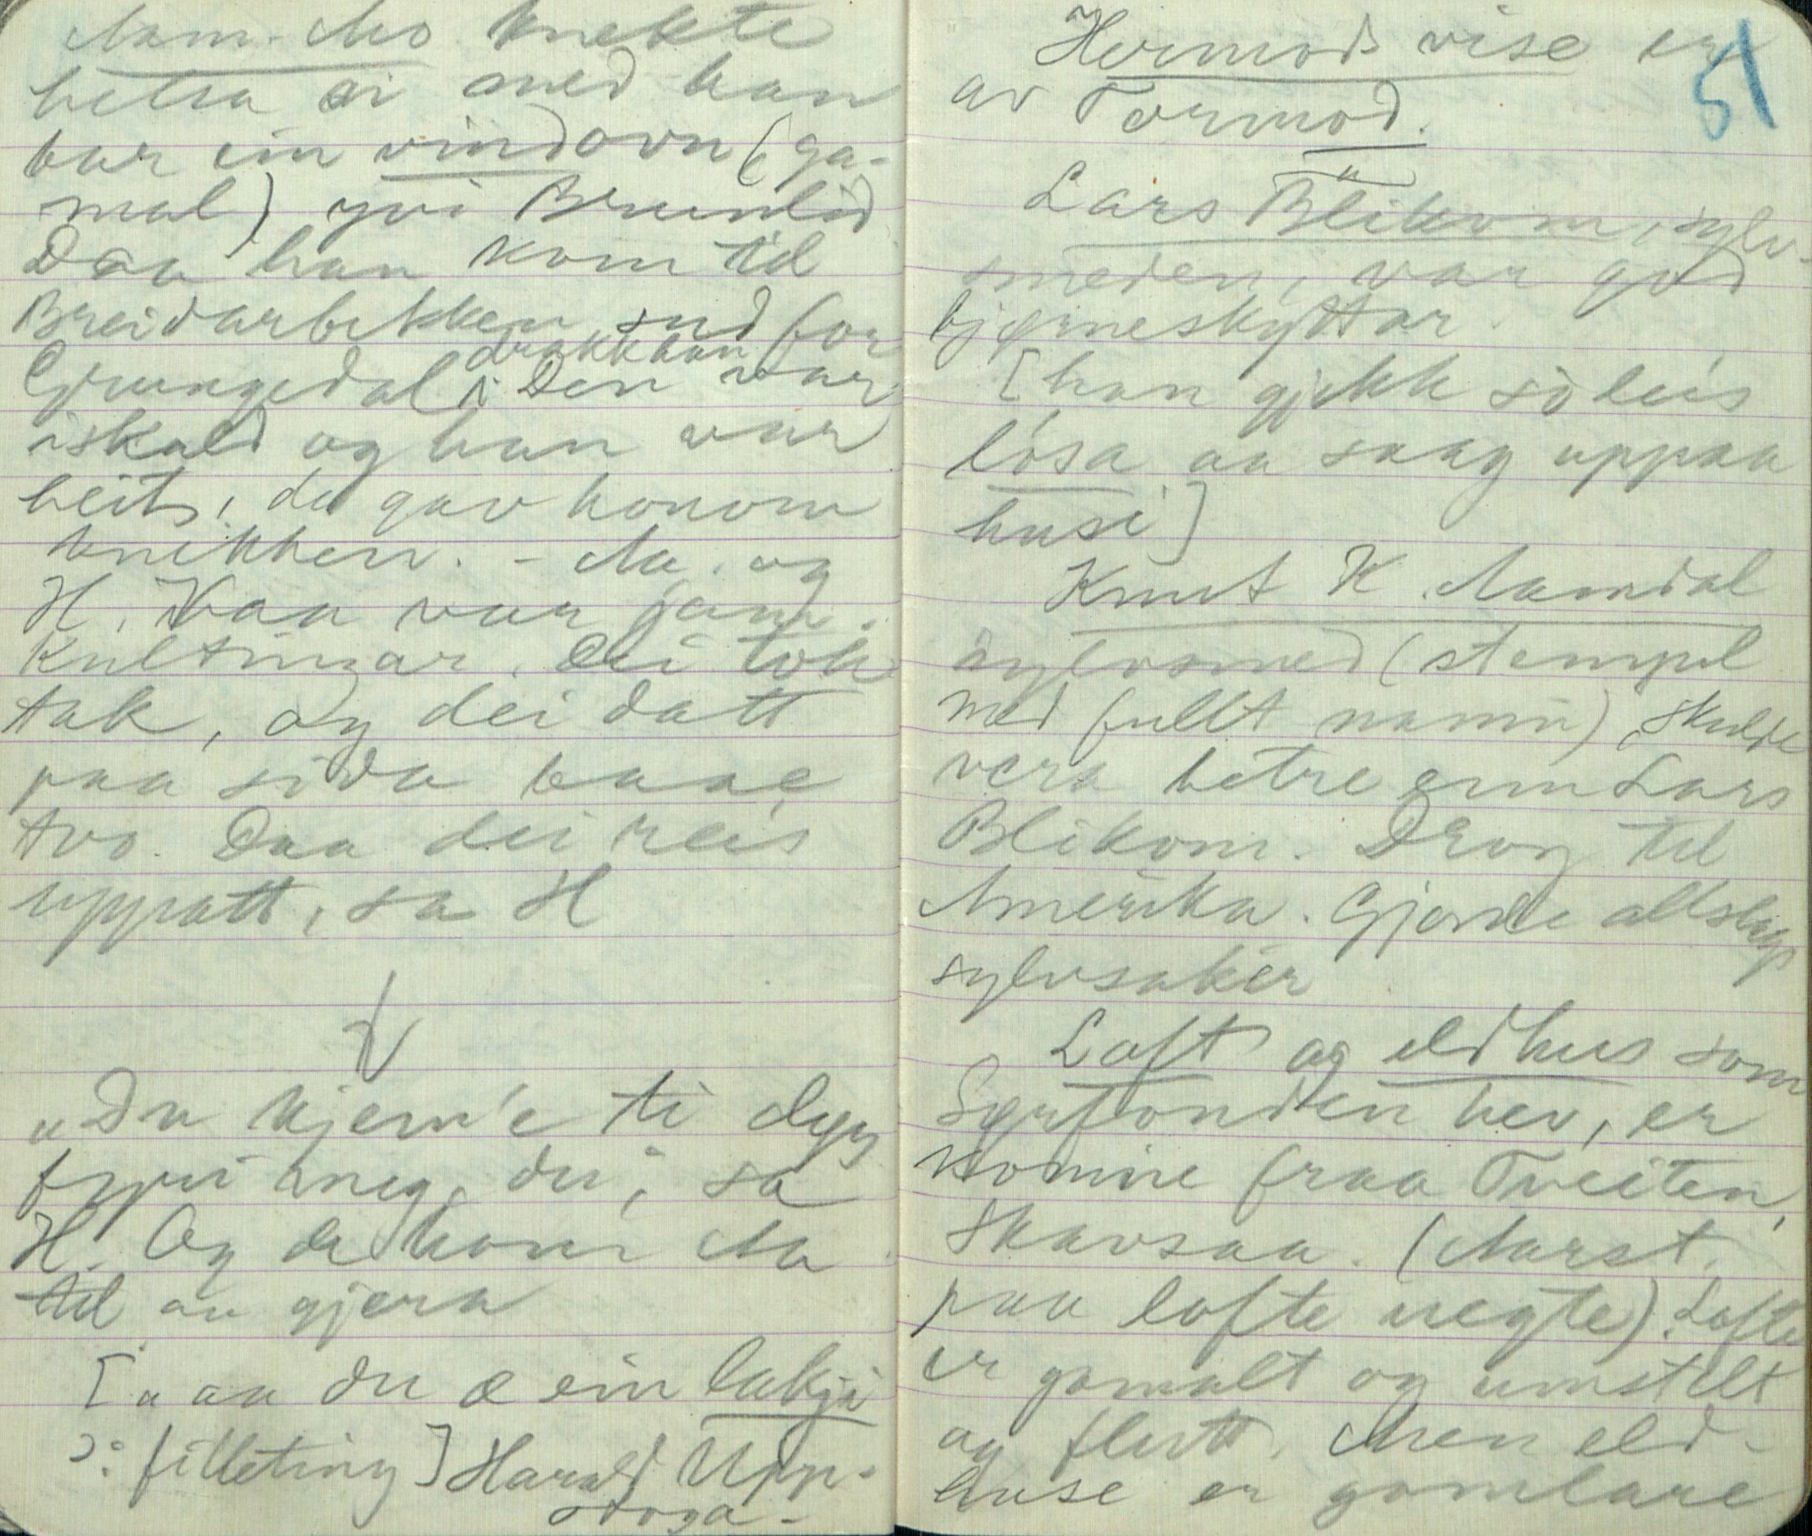 Aam. Mo knekte
helsa si med han
bar ein vindovn (ga-
mal) yvi Brunlid
Daa han kom til
Breidarbekken sud for
drakk han
Grungedal i Den var
iskald og han var
heit, de gav honom
knikken. - Aa. og
H. Vaa var jam-
kultingar. Dei tok
tak, og dei datt
paa sida baae
tvo. Daa dei reis
uppatt, sa H
"Du kjem'e ti
fyri meg, du", sa
H. Og de kom Aa
til aa gjera
["aa du æ ein lakji
ɔ: filleting] Harald Upp-
stoga -
51
Hermods vise er
av Tormod.
Lars Blikom, sylv-
smeden, var god
bjørneskyttar.
[han gjekk so leis
losa aa saag uppaa
husi]
Knut K. Aamdal
sylvsmed (stempel
med fullt namn), skulde
vera betre enn Lars
Blikom. Drog til
Amerika. Gjorde allslags
sylvsaker
Loft og eldhus som
Syftonden hev, er
komne fraa Tveiten,
Skavsaa. (Aarst.
paa lofte) Lofte
er gamalt og umstelt
og flutt. Men eld-
huse er gamlare